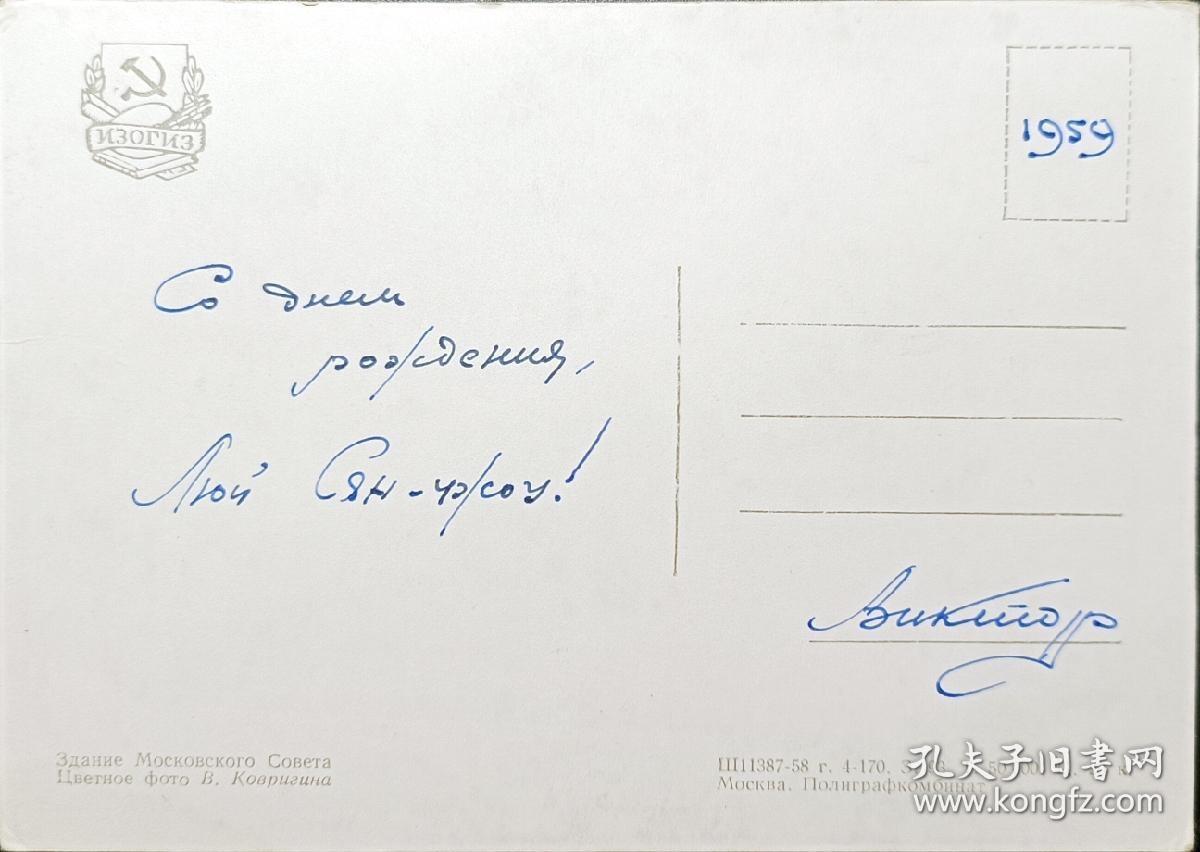 ИЗОГИЗ
1959
Со днем
рождения,
Люй Сян-чжоу!
Виктор
Здание Московского Совета
Цветное фото В. Ковригина
Ш11387-58 г. 4-170.
Москва. Полиграфкомбинат
孔夫子旧书网
www.kongfz.com